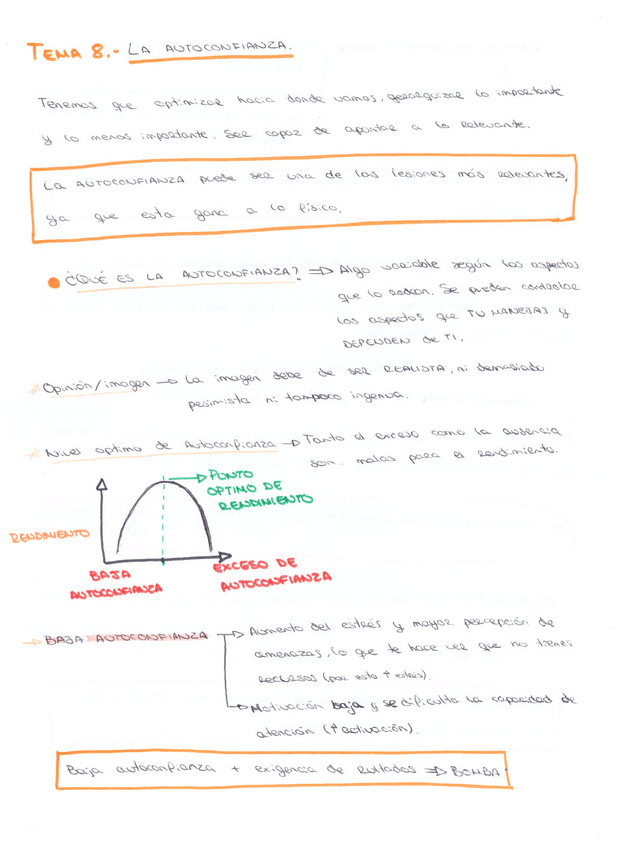 TEMA 8.- LA AUTOCONFIANZA.
Tenemos que optimizar hacia donde vamos, gerarquizar lo importante
y lo menos importante. Ser capaz de apuntar a lo relevante.
La AUTOCONFIANZA puede ser una de las lesiones más relevantes,
ya que esta gana a lo físico.
¿QUÉ ES LA AUTOCONFIANZA? ⇒ Algo variable según los aspectos
que lo rodean. Se pueden controlar
los aspectos que TU MANEJAS y
DEPENDEN de TI.
Opinión/imagen → La imagen debe de ser REALISTA, ni demasiado
pesimista ni tampoco ingenua.
Nivel optimo de Autoconfianza → Tanto el exceso como la ausencia
son malas para el rendimiento.
→ PUNTO
OPTIMO DE
RENDIMIENTO
RENDIMIENTO
BAJA
AUTOCONFIANZA
EXCESO DE
AUTOCONFIANZA
→ BAJA AUTOCONFIANZA → Aumento del estrés y mayor percepción de
amenazas, lo que te hace ver que no tienes
recursos (por esto ↑ estrés).
→ Motivación baja y se dificulta la capacidad de
atención (↑ activación).
Baja autoconfianza + exigencia de rultados ⇒ BOMBA